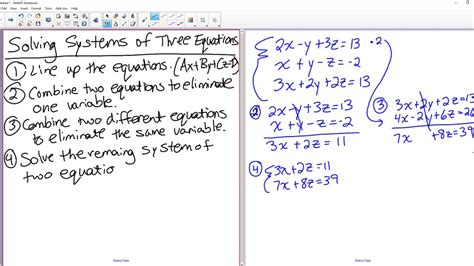 Solving Systems of Three Equations
① Line up the equations. (Ax+By+Cz=D)
② Combine two equations to eliminate
one variable.
③ Combine two different equations
to eliminate the same variable.
④ Solve the remaing system of
two equatio
2x-y+3z=13 •2
x+y-z=-2
3x+2y+2z=13
② 2x-y+3z=13
x+y-z=-2
3x+2z=11
③ 3x+2y+2z=13
4x-2y+6z=26
7x +8z=39
④ 3x+2z=11
7x+8z=39